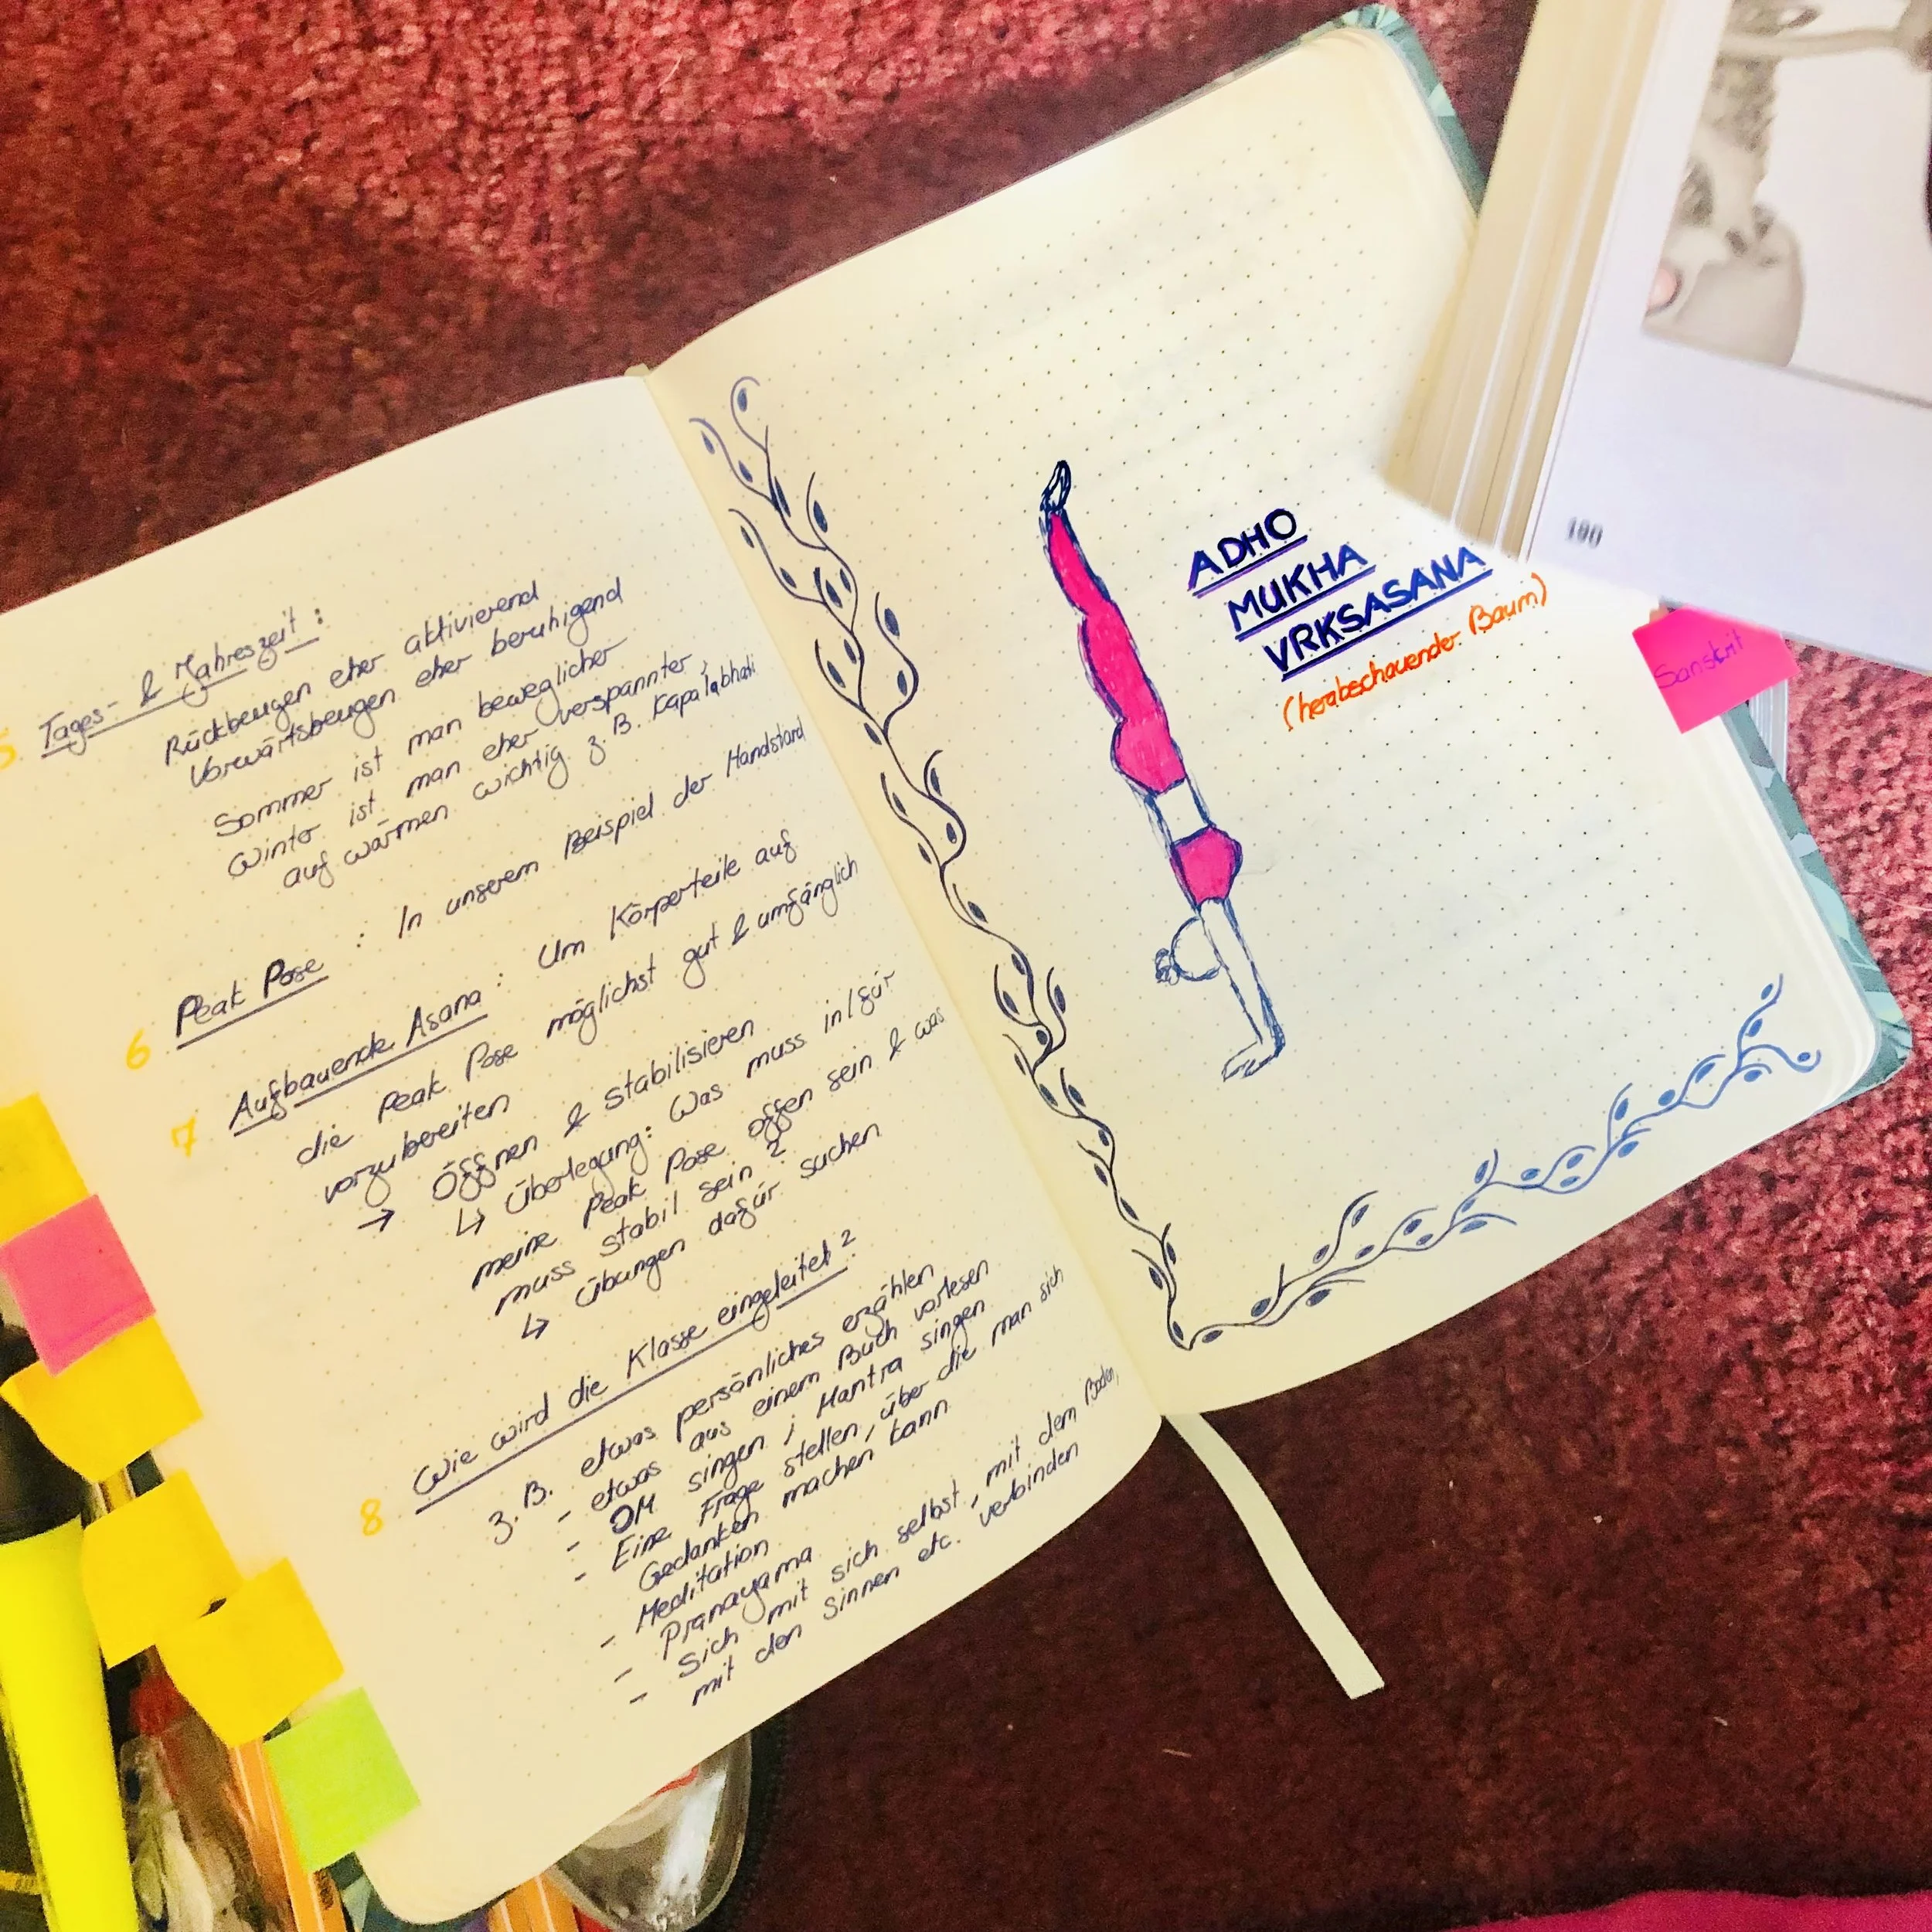 5 Tages- & Jahreszeit:
Rückbeugen eher aktivierend
Vorwärtsbeugen eher beruhigend
Sommer ist man beweglicher
Winter ist man eher verspannter,
auf wärmen wichtig z.B. Kapalabhati
6 Peak Pose : In unserem Beispiel der Handstand
7 Aufbauende Asana: Um Körperteile auf
die Peak Pose möglichst gut & umfänglich
vorzubereiten
→ Öffnen & stabilisieren
↳ Überlegung: Was muss in/für
meine Peak Pose offen sein & was
muss stabil sein?
↳ Übungen dafür suchen
8 Wie wird die Klasse eingeleitet?
z.B. etwas persönliches erzählen
- etwas aus einem Buch vorlesen
- OM singen ; Mantra singen
- Eine Frage stellen, über die man sich
Gedanken machen kann
- Meditation
- Pranayama
- Sich mit sich selbst, mit dem Boden,
mit den Sinnen etc. verbinden
ADHO
MUKHA
VRKSASANA
(herabschauender Baum)
Sanskrit
190